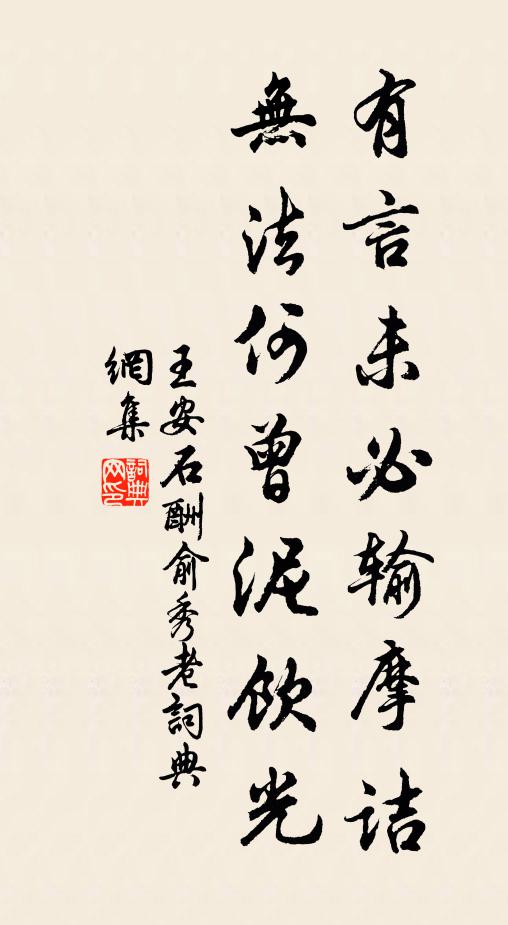 有言未必输摩诘
無法何曾泥飲光
王安石酬俞秀老詞典
網集
詞典
网印